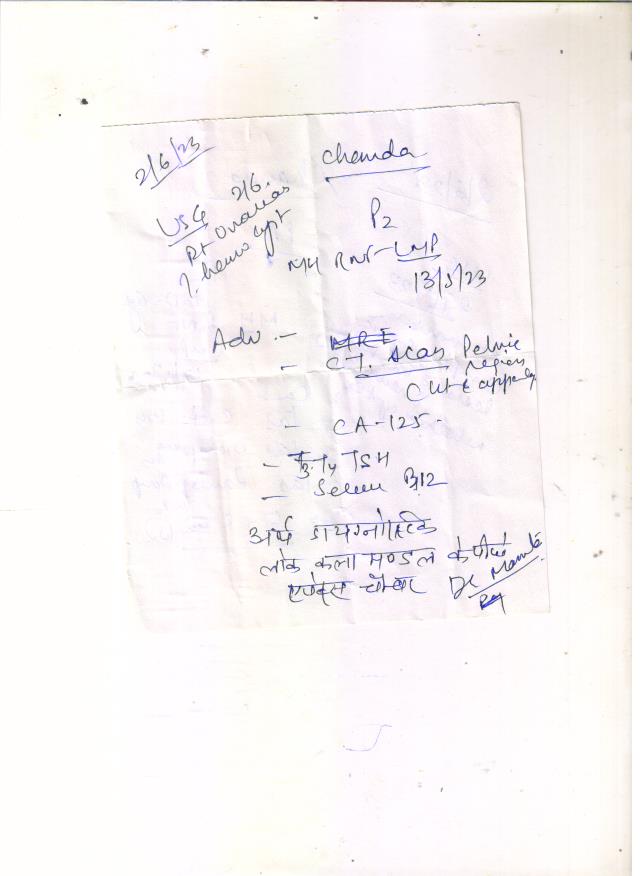 2/6/23
Chanda
USG 2/6.
Rt ovarian
? hemo cyst
P2
MH RNT LMP
13/5/23
Adv. -
- CT. scan Pelvic
region
- CA-125.
- T3 T4 TSH
- Serum B12
अर्थ डायग्नोस्टिक
लोक कला मण्डल के पीछे
चौम्बर Dr Mamta